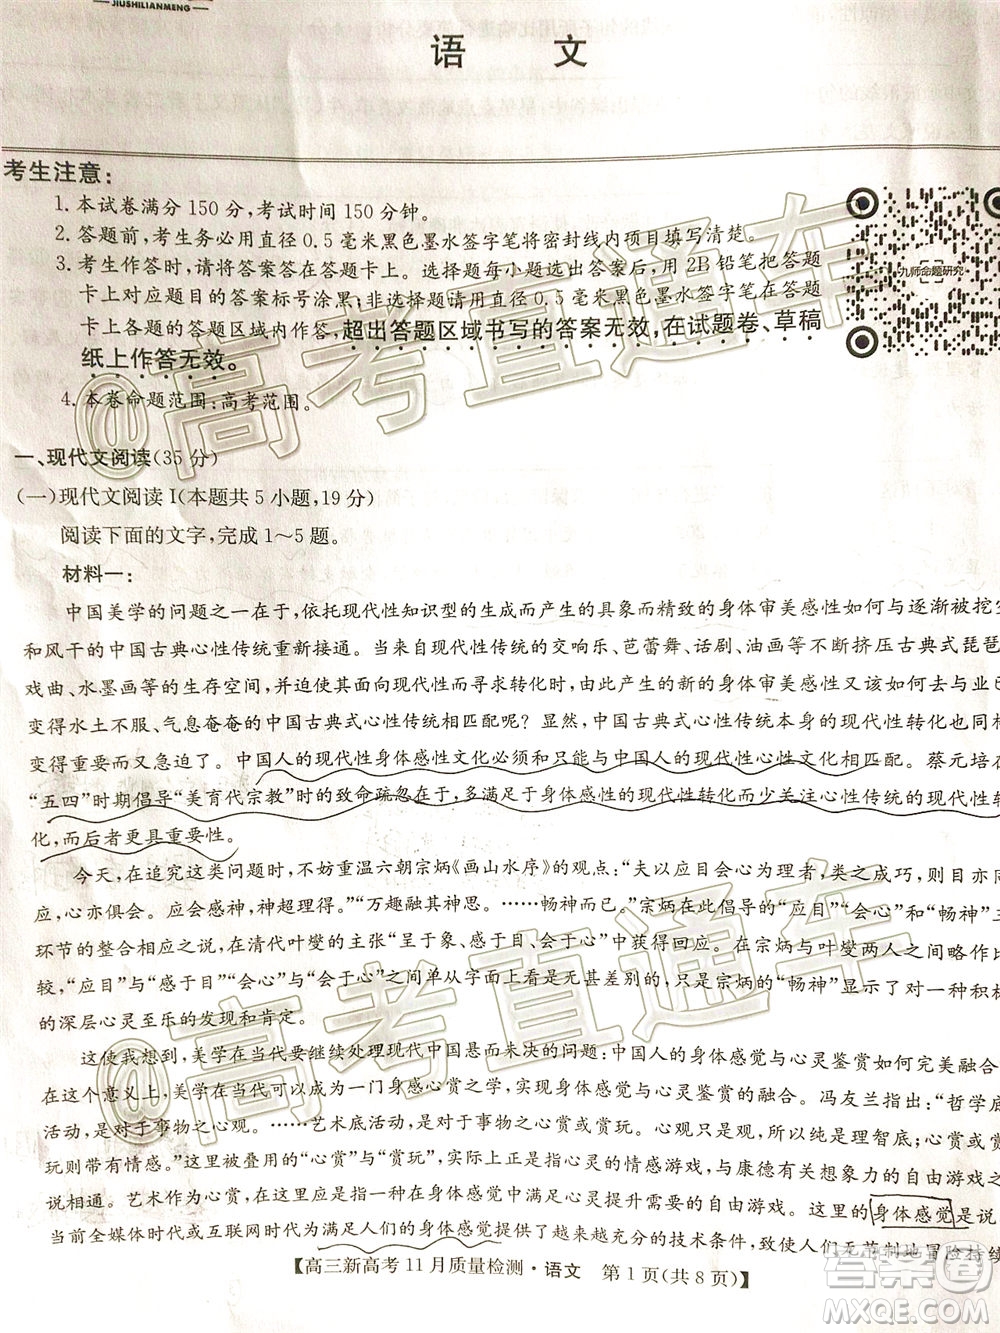 JIUSHILIANMENG
语 文
考生注意：
1. 本试卷满分 150 分，考试时间 150 分钟。
2. 答题前，考生务必用直径 0.5 毫米黑色墨水签字笔将密封线内项目填写清楚。
3. 考生作答时，请将答案答在答题卡上。选择题每小题选出答案后，用 2B 铅笔把答题
卡上对应题目的答案标号涂黑；非选择题请用直径 0.5 毫米黑色墨水签字笔在答题
卡上各题的答题区域内作答，超出答题区域书写的答案无效，在试题卷、草稿
纸上作答无效。
4. 本卷命题范围：高考范围。
九师命题研究
一、现代文阅读(35 分)
(一)现代文阅读 I(本题共 5 小题，19 分)
阅读下面的文字，完成 1～5 题。
材料一：
中国美学的问题之一在于，依托现代性知识型的生成而产生的具象而精致的身体审美感性如何与逐渐被挖空
和风干的中国古典心性传统重新接通。当现代式的交响乐、芭蕾舞、话剧、油画等不断挤压古典式琵琶
戏曲、水墨画等的生存空间，进而实现着审美感受的现代性转化时，由此产生的新的身体审美感性又该如何去与业已
变得水土不服、气息奄奄的中国古典式心性传统相匹配呢？显然，中国古典式心性传统本身的现代性转化同样
变得不可回避了。中国人的现代性身体感性文化必须和只能与中国人的现代性心性文化相匹配。蔡元培在
“五四”时期倡导“美育代宗教”时的致命疏忽在于，多满足于身体感性的现代性转化而少关注心性传统的现代性转
化，而后者更具重要性。
今天，在追究这类问题时，不妨重温六朝宗炳《画山水序》的观点：“夫以应目会心为理者，类之成巧，则目
应，心亦俱会。应会感神，神超理得。”“万趣融其神思。……畅神而已。”宗炳在此倡导的“应目”“会心”和“畅神”三
环节的整合相应之说，在清代叶燮的主张“呈于象、感于目、会于心”中获得回应。在宗炳与叶燮两人之间略作比
较，“应目”与“感于目”和“会心”与“会于心”之间单从字面上看已无甚差别的，只是宗炳的“畅神”更应理解为对
的深层心灵至乐的发现和肯定。
这使我想到，美学在当代要继续处理现代中国悬而未决的问题：中国人的身体感觉与心灵鉴赏如何完美融合
在这个意义上，美学在当代可以成为一门身感心赏之学，实现身体感觉与心灵鉴赏的融合。冯友兰指出：“哲学底
活动，是对于事物之心观。……艺术底活动，是对于事物之心赏或赏玩。心观只是观，所以纯是理智底；心赏或赏
玩则带有情感。”这里叠用的“心赏”与“赏玩”，实际上是指心灵的情感游戏，与康德有关想象力的自由游戏之
说相通。艺术作为心赏，在这里应是指一种在身体感觉的满足上寻求心灵提升需要的自由游戏。这里的身体感觉是说
当前全媒体时代或互联网时代为满足人们的身体感觉提供了越来越优越的技术条件，使人们无节制地冒险持续
【高三新高考 11 月质量检测·语文 第 1 页(共 8 页)】
@高考直通车
@高考直通车
答案圈
MXQE.COM